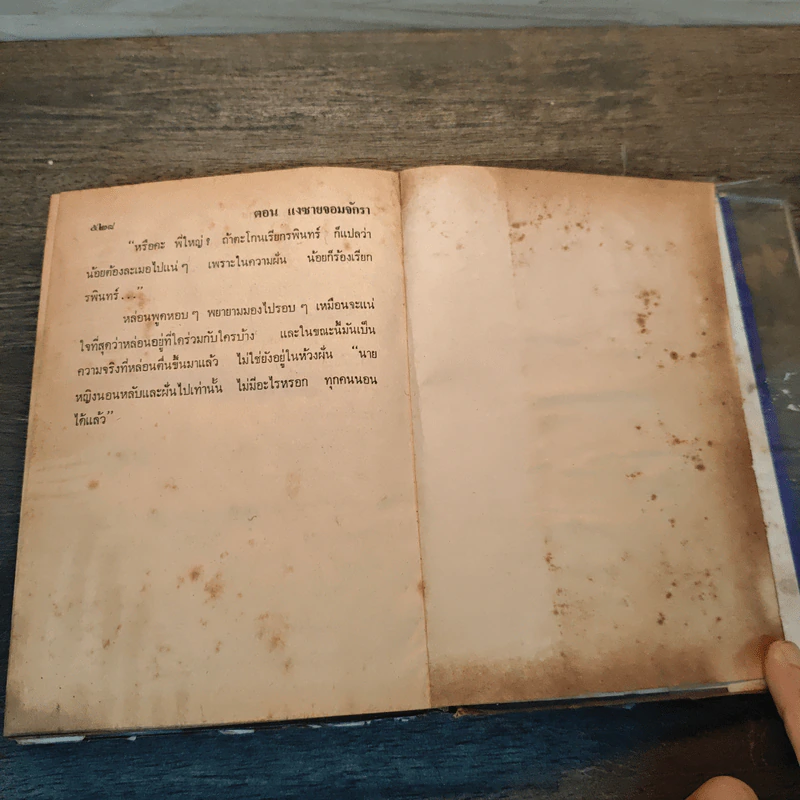 ตอน แงซายจอมจักรา
๕๒๘
"หรือคะ พี่ใหญ่ ! ถ้าตะโกนเรียกรพินทร์ ก็แปลว่า
น้อยต้องละเมอไปแน่ ๆ เพราะในความฝัน น้อยก็ร้องเรียก
รพินทร์...."
หล่อนพูดหอบ ๆ พยายามมองไปรอบ ๆ เหมือนจะแน่
ใจที่สุดว่าหล่อนอยู่ที่ใดร่วมกับใครบ้าง และในขณะนี้มันเป็น
ความจริงที่หล่อนตื่นขึ้นมาแล้ว ไม่ใช่ยังอยู่ในห้วงฝัน "นาย
หญิงนอนหลับและฝันไปเท่านั้น ไม่มีอะไรหรอก ทุกคนนอน
ได้แล้ว"